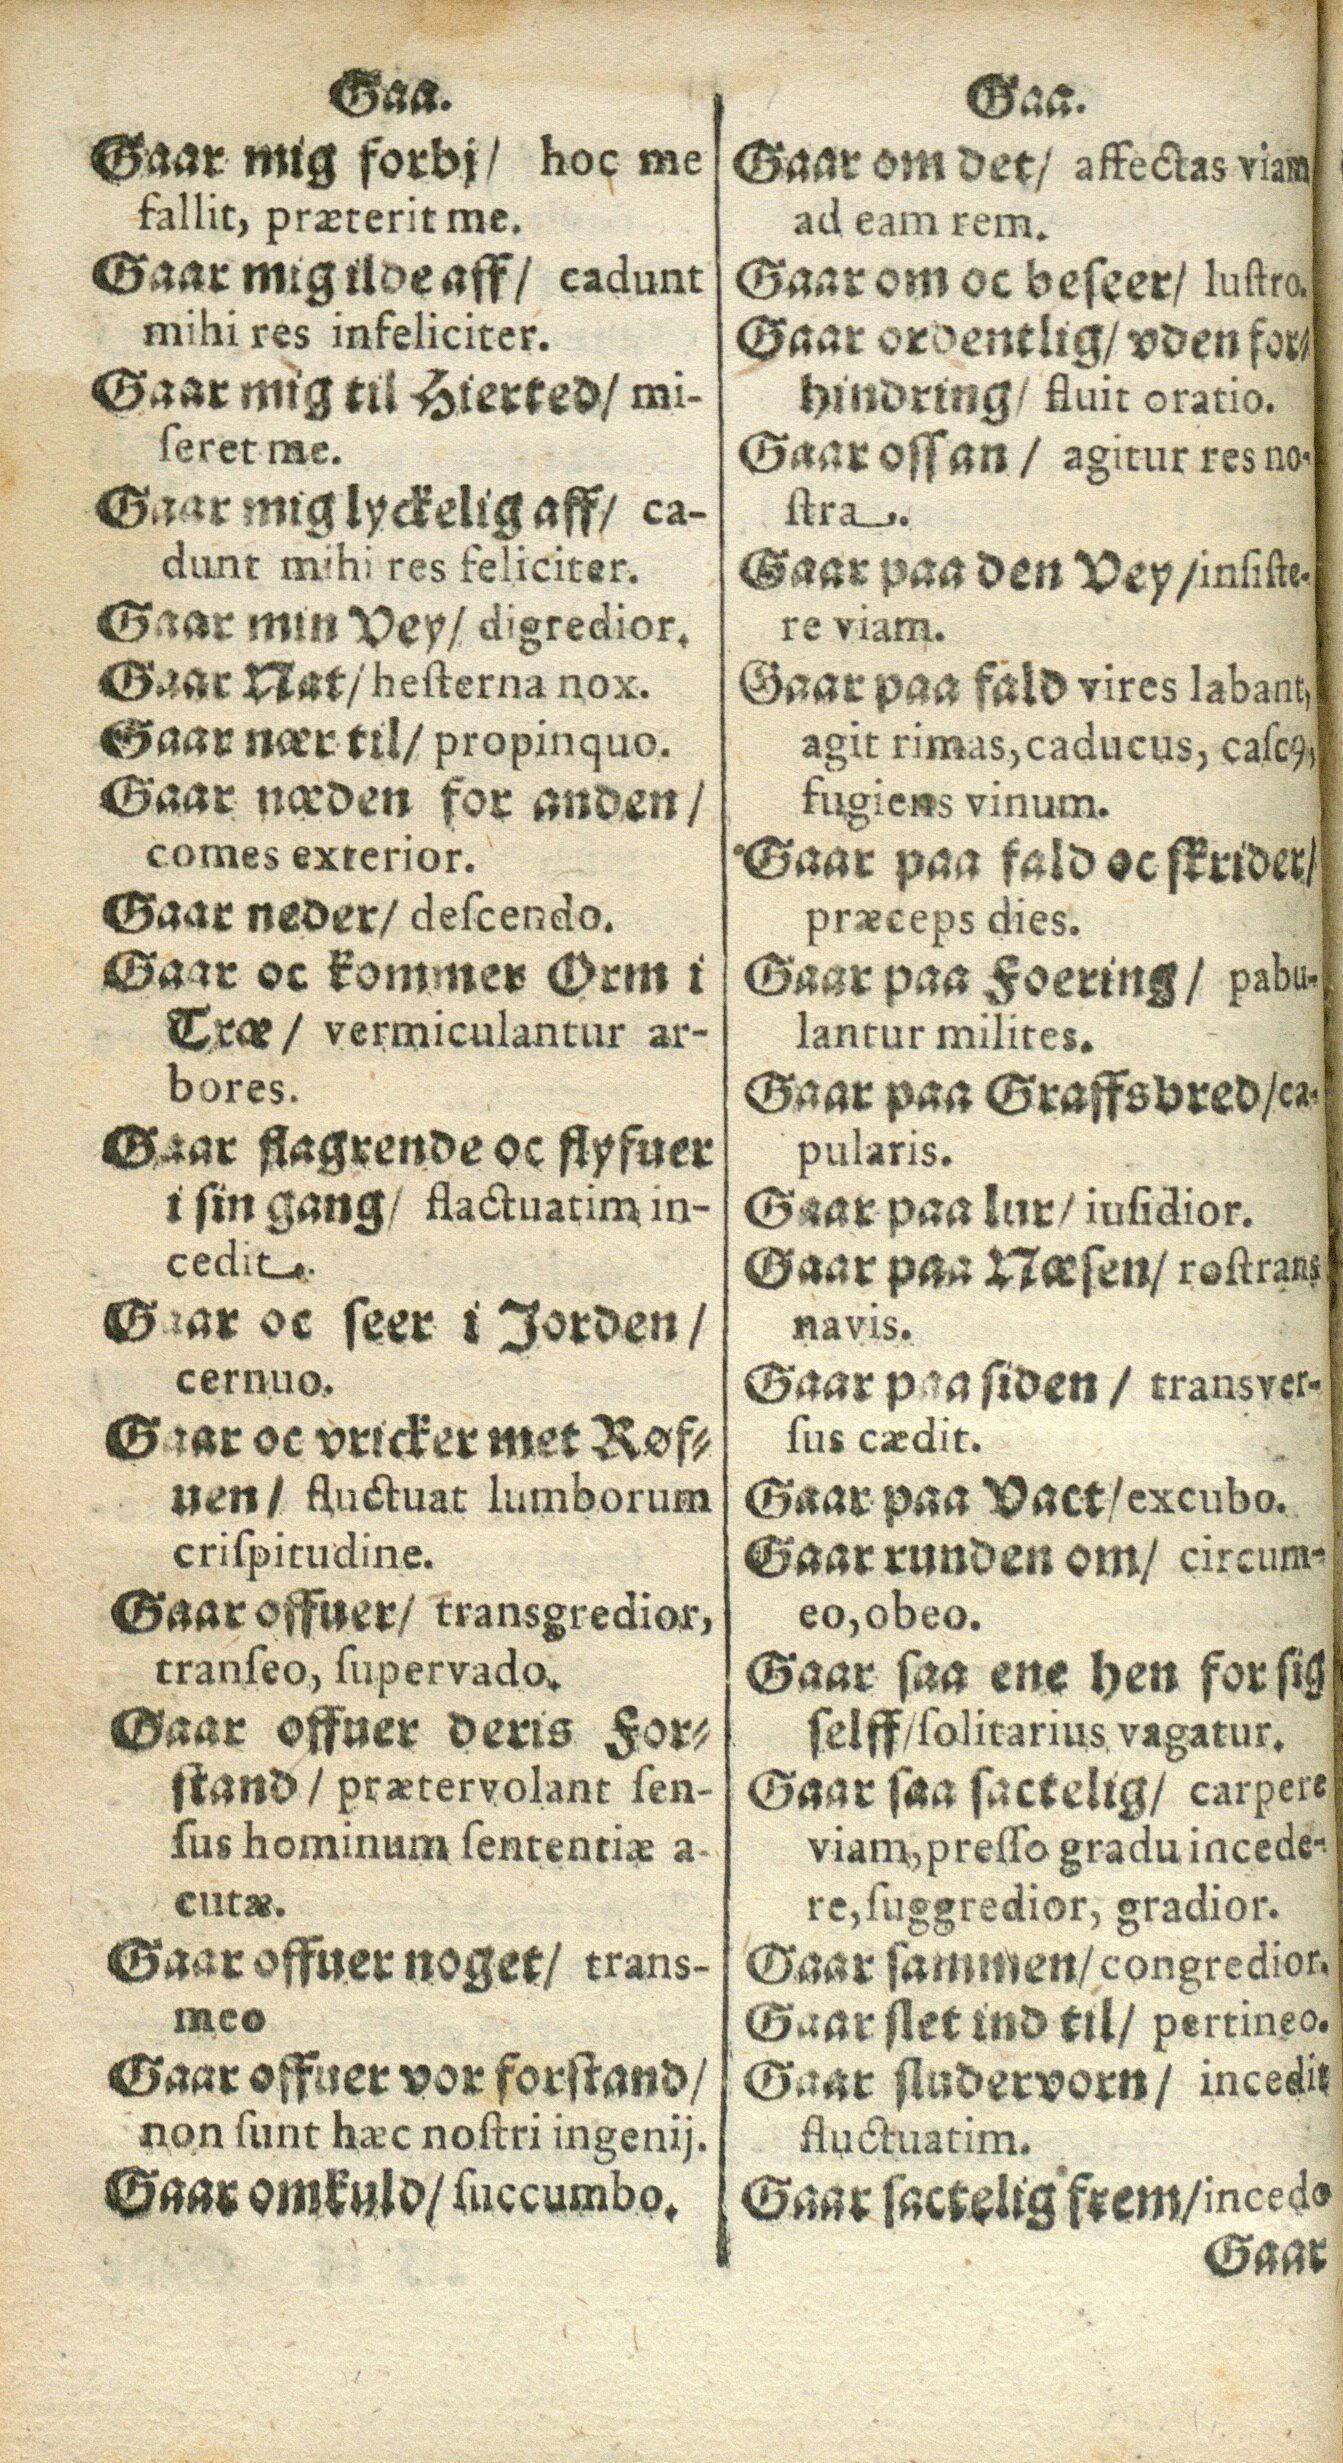 Gaa.
Gaar mig forbj/ hoc me
fallit, præterit me.
Gaar mig ilde aff/ cadunt
mihi res infeliciter.
Gaar mig til Hierted/ mi-
ſeret me.
Gaar mig lyckelig aff/ ca-
dunt mihi res feliciter.
Gaar min Vey/ digredior.
Gaar Nat/ heſterna nox.
Gaar nær til/ propinquo.
Gaar næden for anden/
comes exterior.
Gaar neder/ deſcendo.
Gaar oc kommer Orm i
Træ/ vermiculantur ar-
bores.
Gaar flagrende oc flyfuer
i ſin gang/ flactuatim in-
cedit.
Gaar oc ſeer i Jorden/
cernuo.
Gaar oc vricker met Røf-
uen/ fluctuat lumborum
criſpitudine.
Gaar offuer/ transgredior,
tranſeo, ſupervado.
Gaar offuer deris For-
ſtand/ prætervolant ſen-
ſus hominum ſententiæ a-
cutæ.
Gaar offuer noget/ trans-
meo
Gaar offuer vor forſtand/
non ſunt hæc noſtri ingenij.
Gaar omkuld/ ſuccumbo.
Gaa.
Gaar om det/ affectas viam
ad eam rem.
Gaar om oc beſeer/ luſtro.
Gaar ordentlig/ vden for-
hindring/ fluit oratio.
Gaar oſſ an/ agitur res no-
ſtra.
Gaar paa den Vey/ inſiſte-
re viam.
Gaar paa fald vires labant,
agit rimas, caducus, caſcꝰ,
fugiens vinum.
Gaar paa fald oc ſkrider/
præceps dies.
Gaar paa Foering/ pabu-
lantur milites.
Gaar paa Graffsbred/ ca-
pularis.
Gaar paa lur/ iuſidior.
Gaar paa Næſen/ roſtrans
navis.
Gaar paa ſiden/ transver-
ſus cædit.
Gaar paa Vact/ excubo.
Gaar runden om/ circum-
eo, obeo.
Gaar ſaa ene hen for ſig
ſelff/ ſolitarius vagatur.
Gaar ſaa ſactelig/ carpere
viam, preſſo gradu incede-
re, ſuggredior, gradior.
Gaar ſammen/ congredior.
Gaar ſlet ind til/ pertineo.
Gaar ſludervorn/ incedit
fluctuatim.
Gaar ſactelig frem/ incedo
Gaar